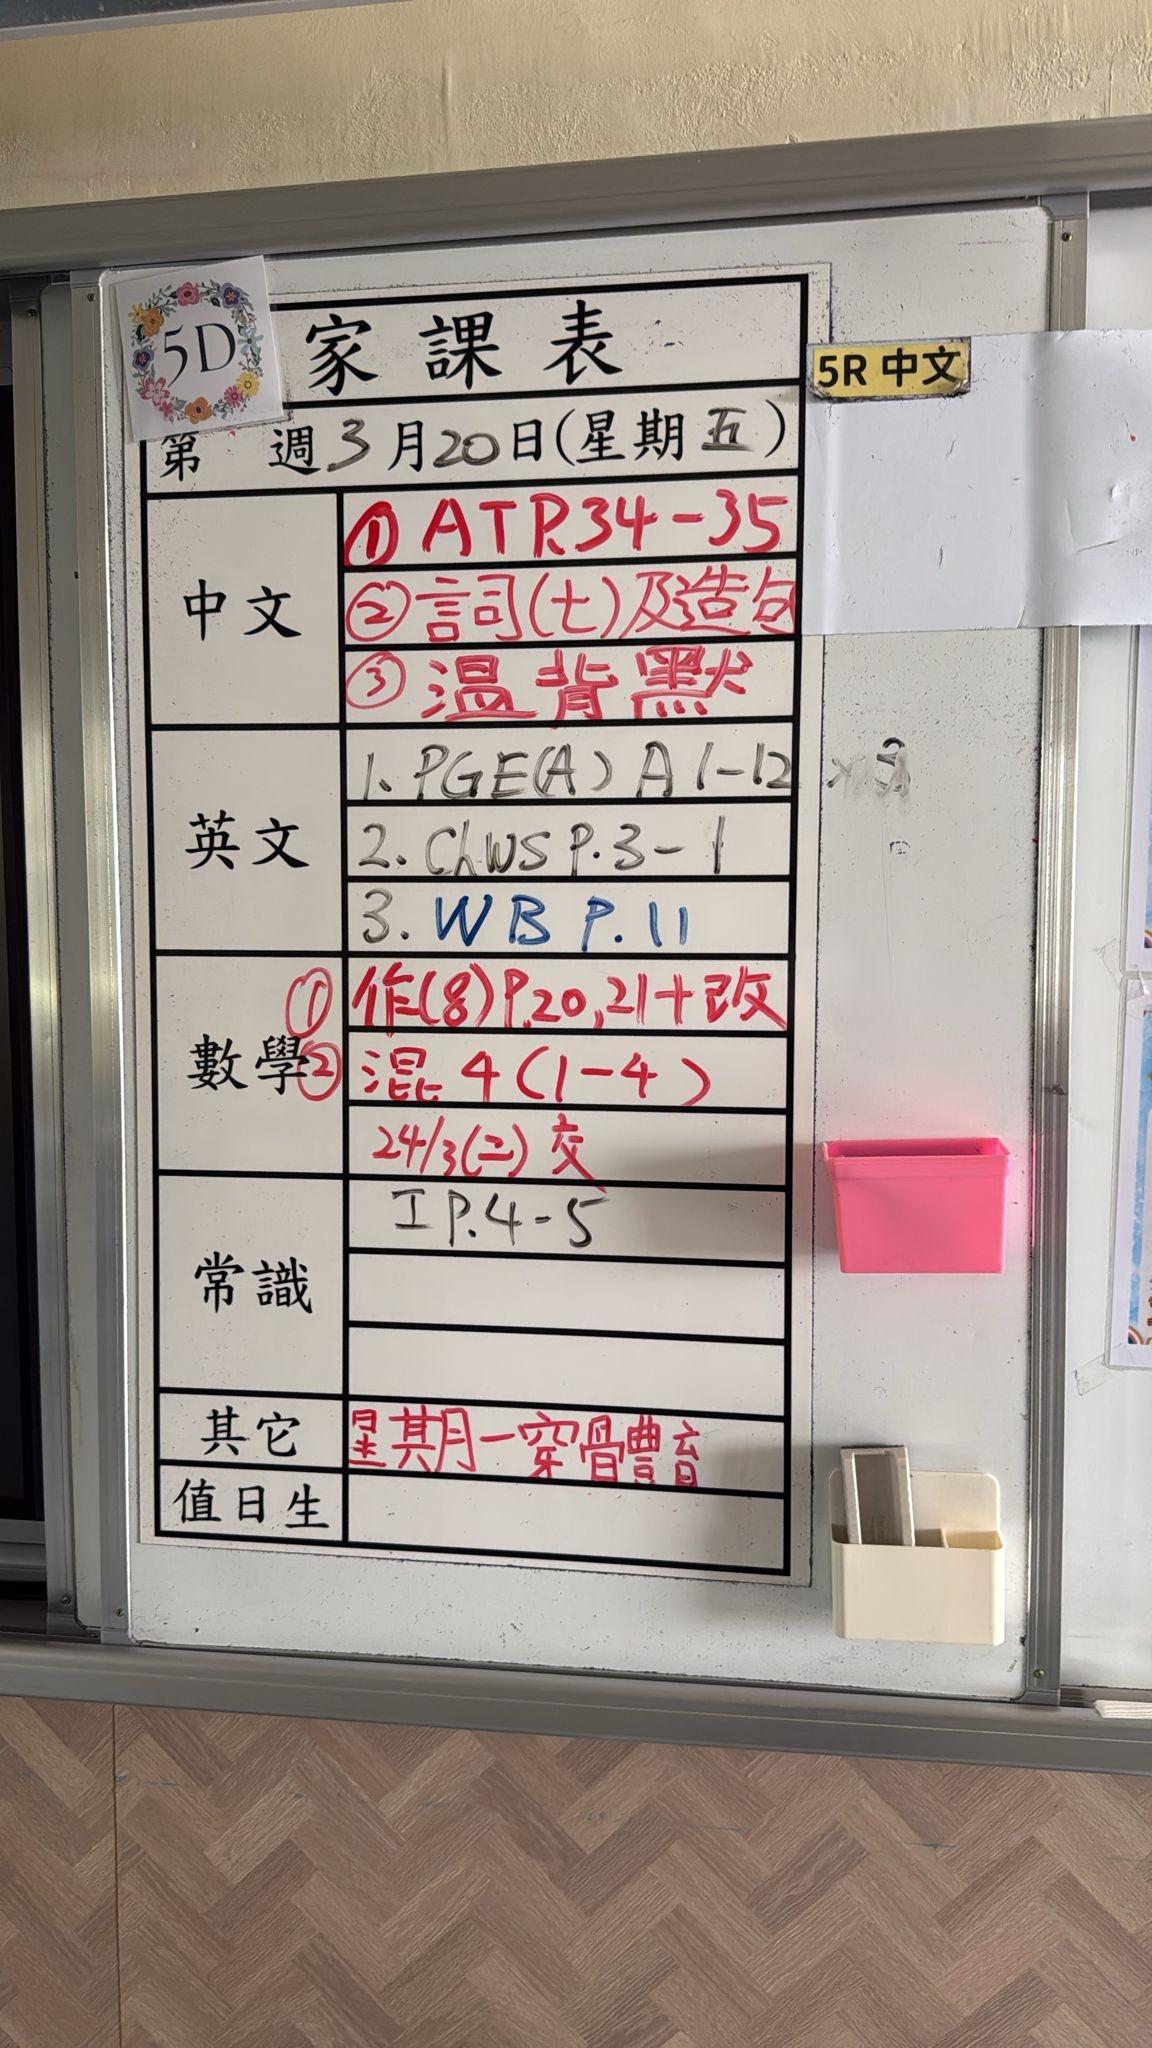 5D
家課表
5R 中文
第 週 3月20日(星期五)
中文
① ATP.34-35
② 詞(七)及造句
③ 溫背默
英文
1. PGE(A) A1-12
2. ChWS P.3-1
3. WB P.11
數學
① 作(8)P.20,21+改
② 混4(1-4)
24/3(二)交
常識
IP.4-5
其它
星期一穿體育
值日生